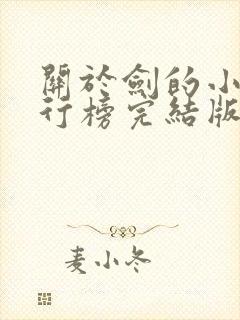 關於劍的小
行榜完結版
麦小冬